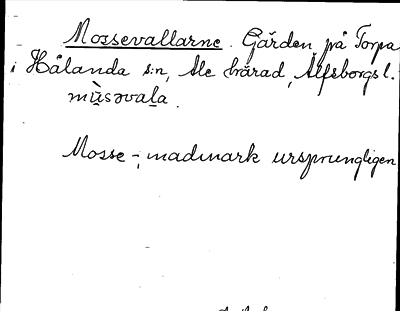 Mossevallarne. Gärden på Torpa
i Hålanda s:n, Ale härad, Älfsborgs l.
mùsəvala.
Mosse-, madmark ursprungligen